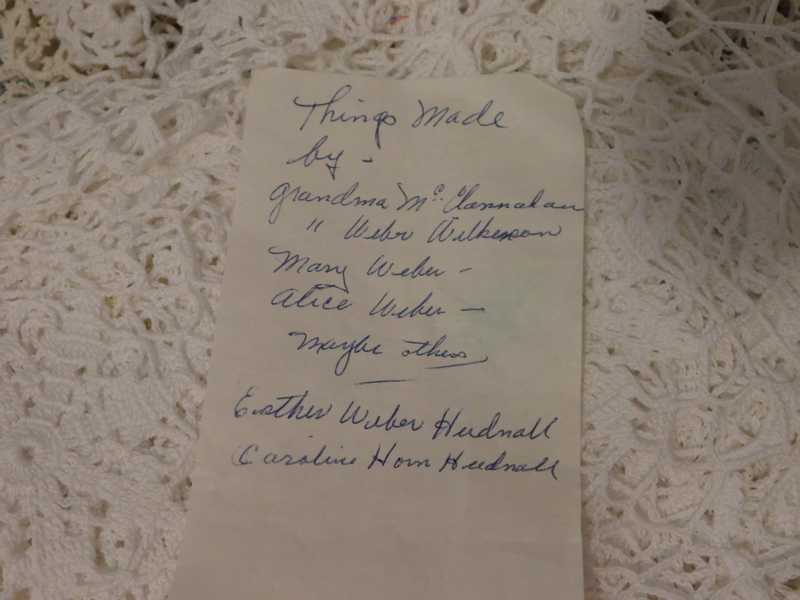 Things Made
by -
Grandma Mc Clannahan
" Weber Wilkerson
Mary Weber -
Alice Weber -
Maybe others
Esther Weber Hudnall
Caroline Horn Hudnall